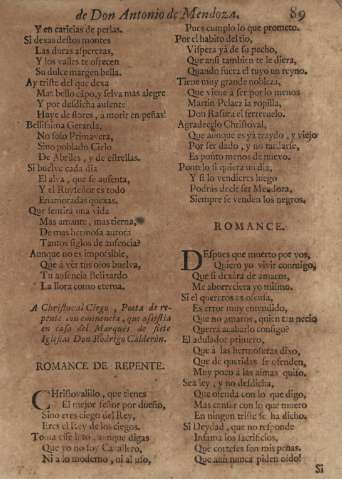 de Don Antonio de Mendoza. 89
Y en caricias de perlas.
Si dexas destos montes
Las duras asperezas,
Y los valles te ofrecen
Su dulce margen bella.
Ay triste del que dexa
Mas bello espo, y selva mas alegre
Y por desdicha ausente
Huye de flores, a morir en peñas!
Bellissima Gerarda,
No solo Primavera,
Sino poblado Cielo
De Abriles, y de estrellas.
Si buelve cada dia
El alva, que se ausenta,
Y el Ruyseñor es todo
Enamoradas quexas.
Que sentira una vida
Mas amante, mas tierna,
De mas hermosa aurora
Tantos siglos de ausencia?
Aunque no es impossible,
Que à ver tus ojos buelva,
Tu ausencia Belisardo
La llora como eterna.
A Christoval Ciego, Poeta de re-
pente con eminencia, que assistia
en casa del Marques de siete
Iglesias Don Rodrigo Calderòn.
ROMANCE DE REPENTE.
CHristovalillo, que tienes
El mejor señor por dueño,
Sino eres ciego del Rey,
Eres el Rey de los ciegos.
Toma esse luto, aunque digas
Que yo no soy Cavallero,
Ni a lo moderno, ni al uso,
Pues cumplo lo que prometo.
Por el habito del tio,
Vispera yà de su pecho,
Que ansi tambien te le diera,
Quando fuera el tuyo un reyno.
Tiene muy grande nobleza,
Que viene à ser por lo menos
Martin Pelaez la ropilla,
Don Rasura el ferreruelo.
Agradeçelo Christoval,
Que aunque es yà traydo, y viejo
Por ser dado, y no tardarse,
Es punto menos de nuevo.
Pontelo si quiera un dia,
Y si lo vendieres luego
Podràs decir ser Mendoza,
Siempre se venden los negros.
ROMANCE.
DEspues que muerto por vos,
Quiero yo vivir conmigo,
Que si dexàra de amaros,
Me aborreciera yo mismo.
Si el quereros es osadia,
Es error muy entendido,
Que no amaros, quien tan necio
Querrà acabarlo consigo?
El adulador primero,
Que à las hermosuras dixo,
Que de queridas se ofenden,
Muy poco à las almas quiso.
Sea ley, y no desdicha,
Que ofenda con lo que digo,
Mas cansar con lo que muero
En ningun triste se ha dicho.
Si Deydad, que no responde
Infama los sacrificios,
Que corteses son mis penas,
Que aun nunca piden oìdo!
Si